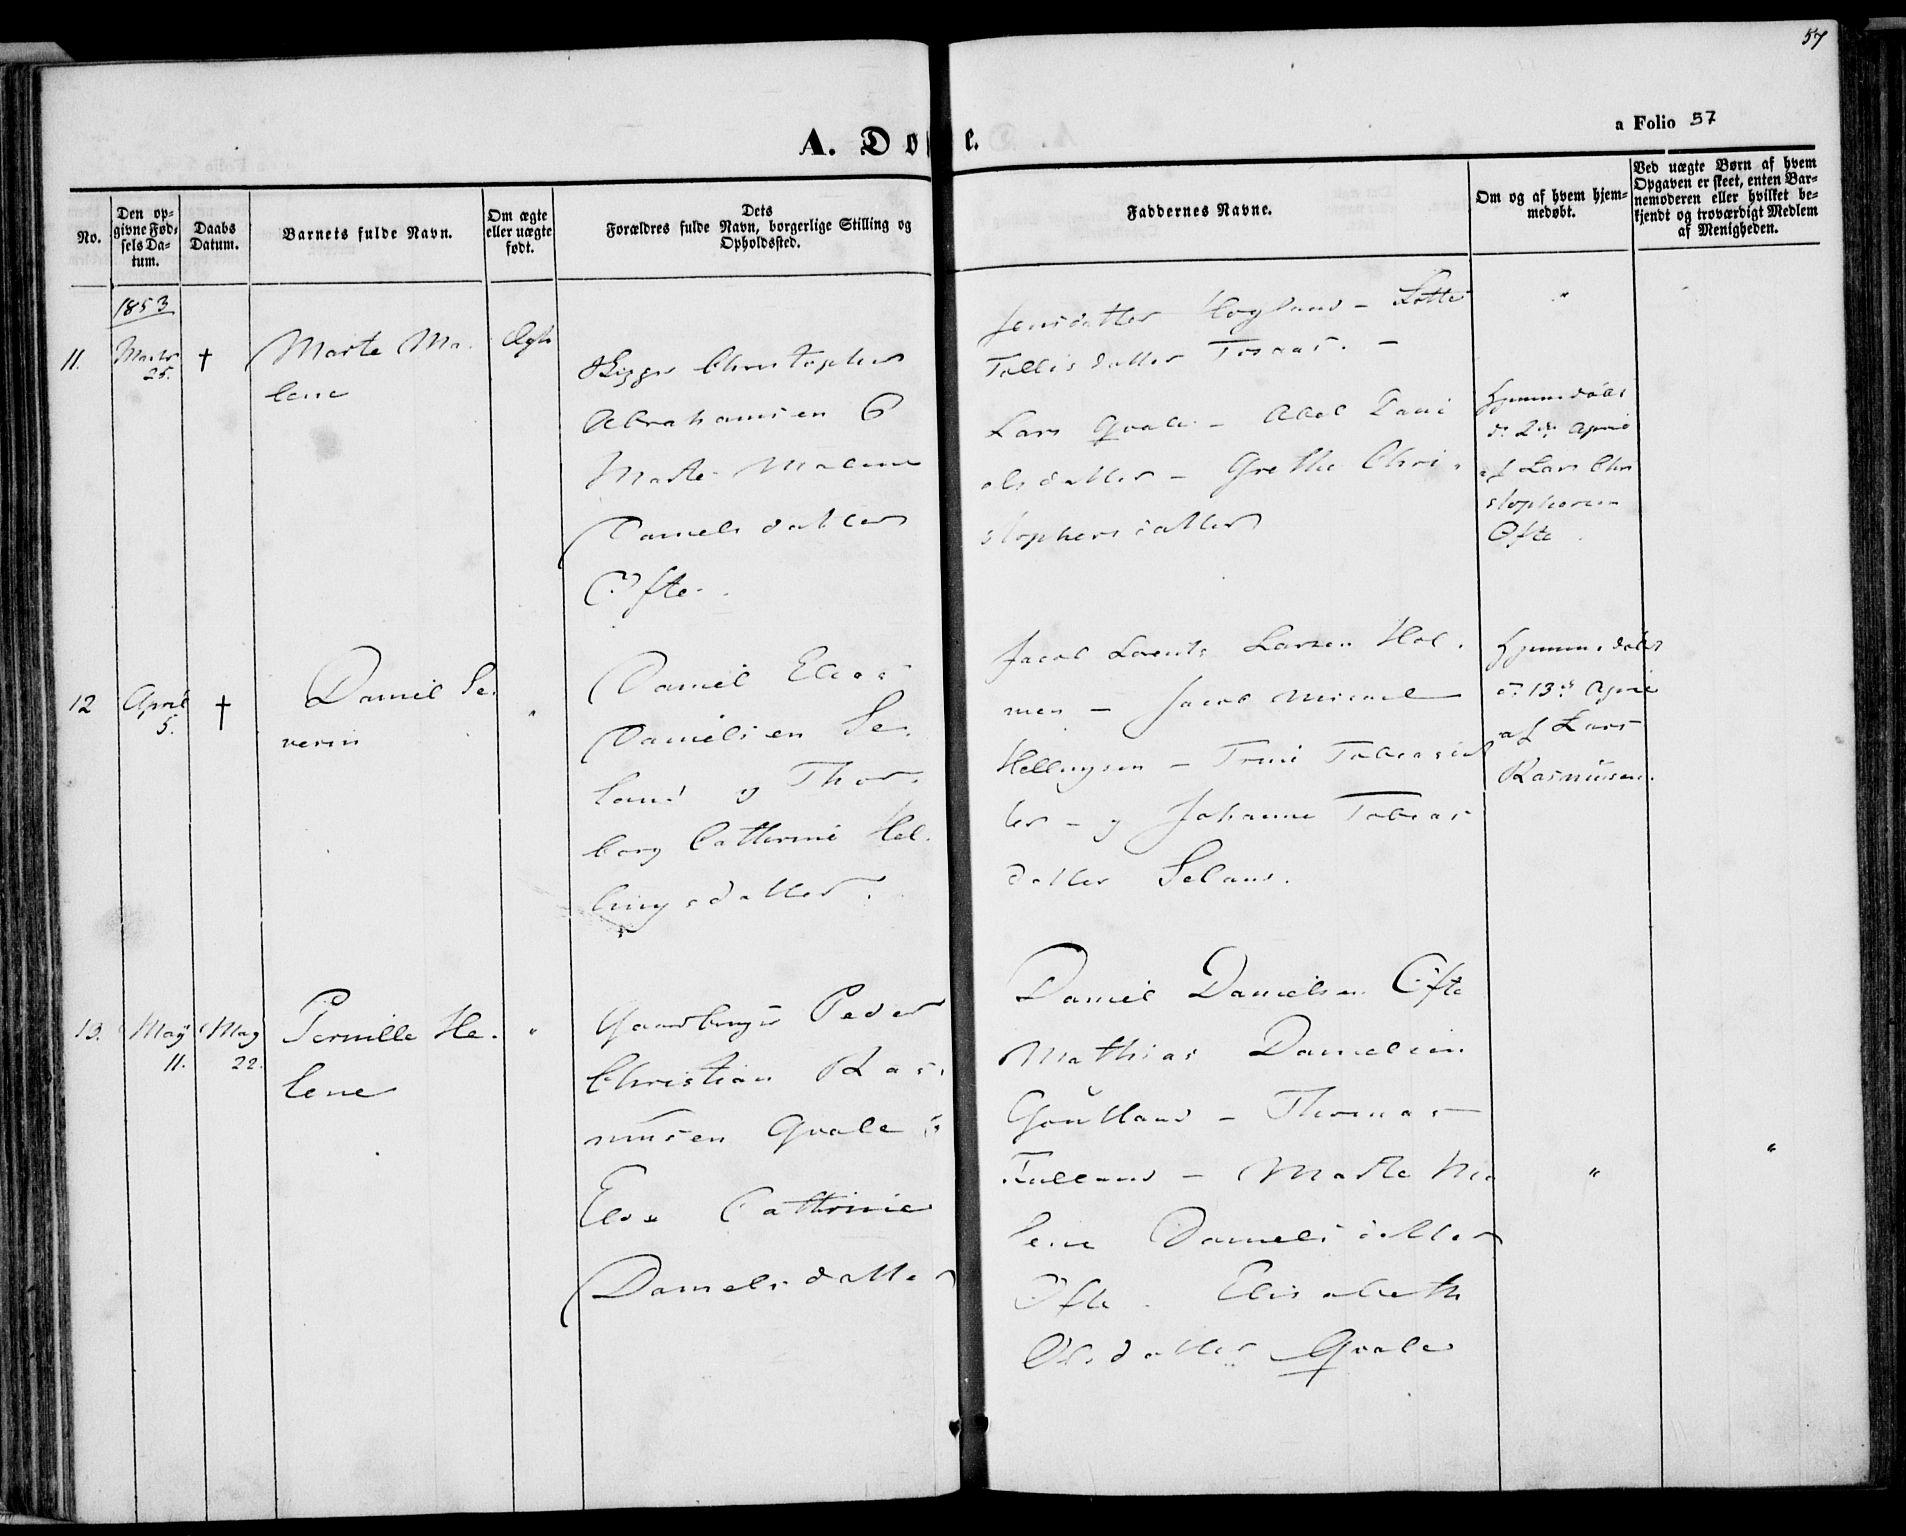 57
a Folio 57
A. Døbte.
No.
Den op-
givne Fød-
sels Da-
tum.
Daabs
Datum.
Barnets fulde Navn.
Om ægte
eller uægte
født.
Dets
Forældres fulde Navn, borgerlige Stilling og
Opholdssted.
Faddernes Navne.
Om og af hvem hjem-
medøbt.
Ved uægte Børn af hvem
Opgaven er skeet, enten Bar-
nemoderen eller hvilket be-
kjendt og troværdigt Medlem
af Menigheden.
1853
Jensdatter Hogland - Lotte
Tollisdatter
11.
Marts
25.
†
Marte Ma-
lene
Ægte
Christopher
Abrahamsen &
Marte Malene
Danielsdatter
Øfte.
Lars Qvale - Abel Dani
elsdatter - Grethe Chri-
stophersdatter
Hjemmedøbt
d. 2den April
af Lars Chri
stophersen
Øfte
12
April
5.
†
Daniel Se-
verin
"
Daniel Elias
Danielsen Se-
land og Thor-
borg Cathrine Hel-
lingsdatter.
Jacob Lorents Larsen Hol-
men - Jacob Micael
Hellingsen - Trine Tobiasdat
ter - og Johanne Tobias
datter Seland.
Hjemmedøbt
d. 13de April
af Lars
Rasmusen.
13.
May
11.
May
22.
Pernille He-
lene
"
Peder
Christian Ras-
musen Qvale &
Else Cathrine
Danielsdatter
Daniel Danielsen Øfte
Mathias Danielsen
- Thomas
- Marte Ma
lene Danielsdatter
Øfte. Elisabeth
Olsdatter Qvale
"
"